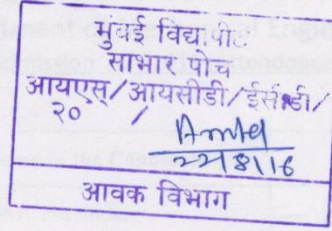 मुंबई विद्यापीठ
साभार पोच
आयएस/आयसीडी/ईसीडी/
२० /
22/8/16
आवक विभाग